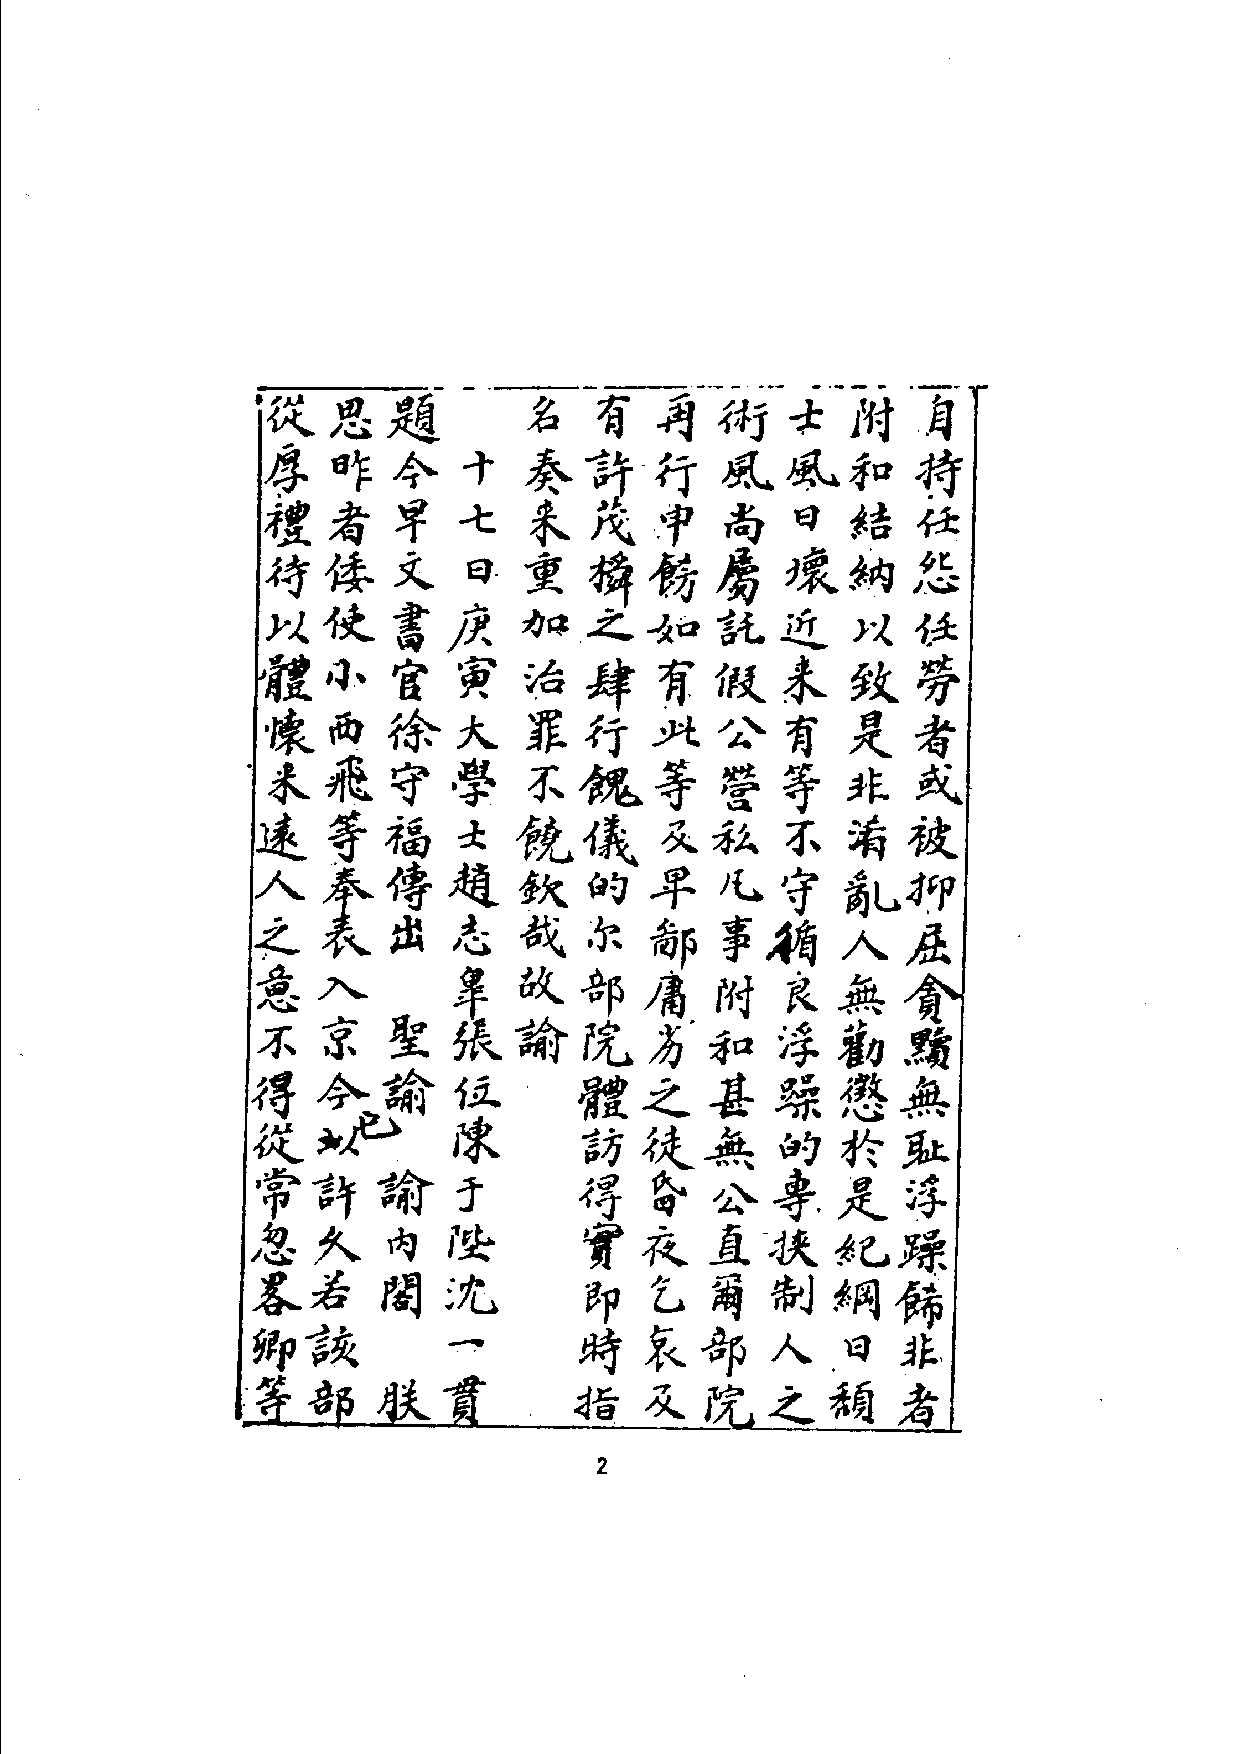 自持任怨任勞者或被抑屈貪黷無恥浮躁餙非者
附和結納以致是非淆亂人無勸懲於是紀綱日頹
士風日壞近来有等不守循良浮躁的專挾制人之
術風尚屬託假公營私凡事附和甚無公直爾部院
再行申餝如有此等及早鄙庸劣之徒昏夜乞哀及
有許茂橓之肆行餽儀的尔部院體訪得實即時指
名奏来重加治罪不饒欽哉故諭
十七日庚寅大學士趙志皐張位陳于陛沈一貫
題今早文書官徐守福傳出 聖諭 諭內閣 朕
思昨者倭使小西飛等奉表入京今已許久若該部
從厚禮待以體懷来遠人之意不得從常忽畧卿等
2